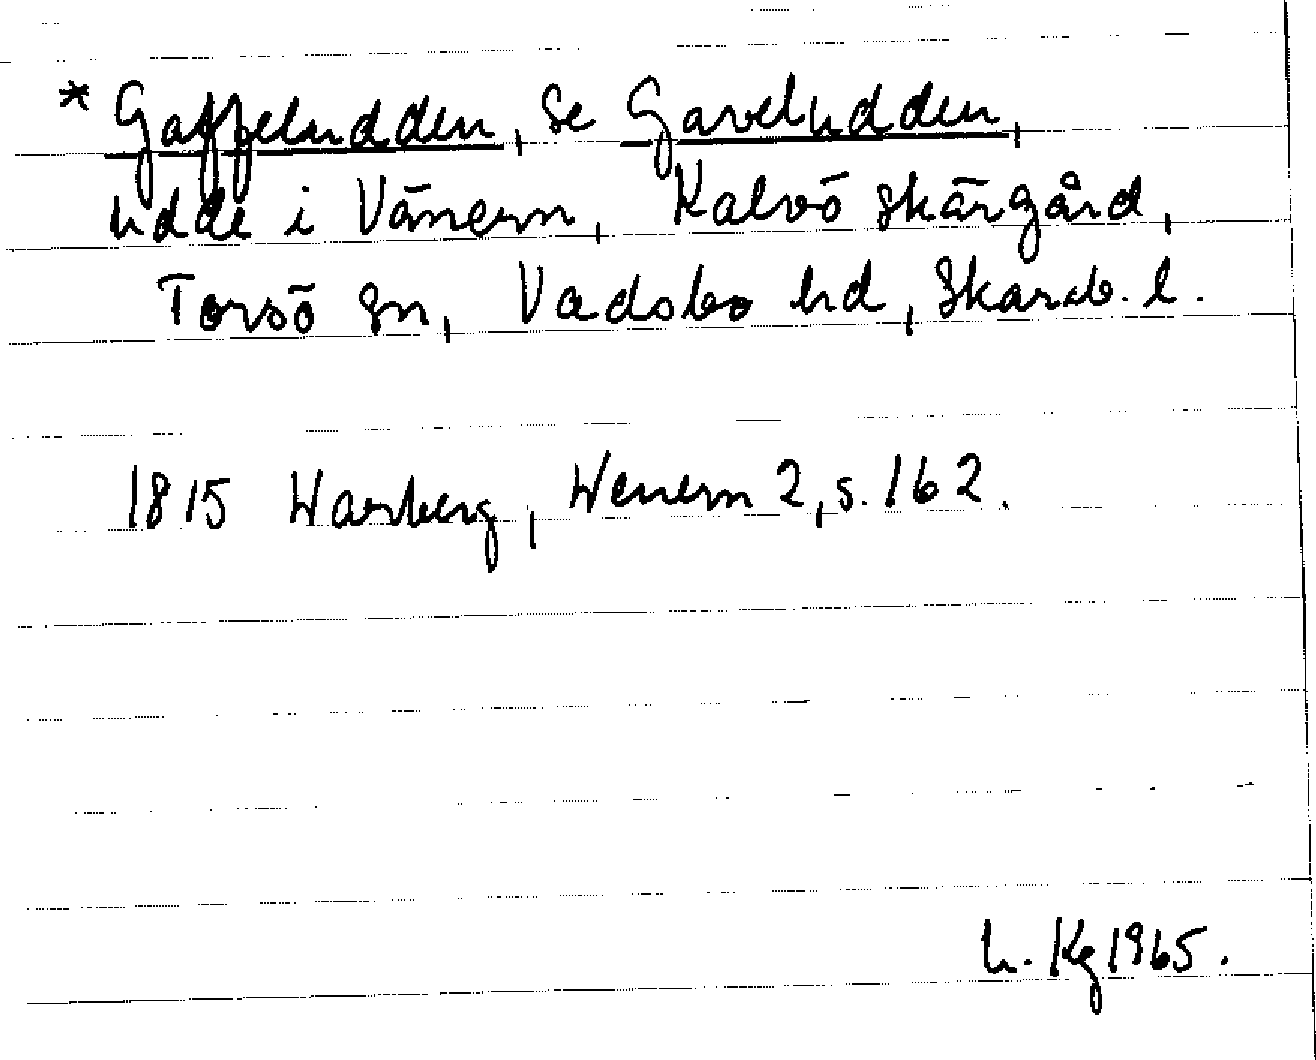 * Gaffeludden, se Gaveludden,
udde i Vänern, Kalvö skärgård,
Torsö sn, Vadsbo hd, Skarab. l.
1815 Warberg, Wenern 2, s. 162.
L. Kg 1965.